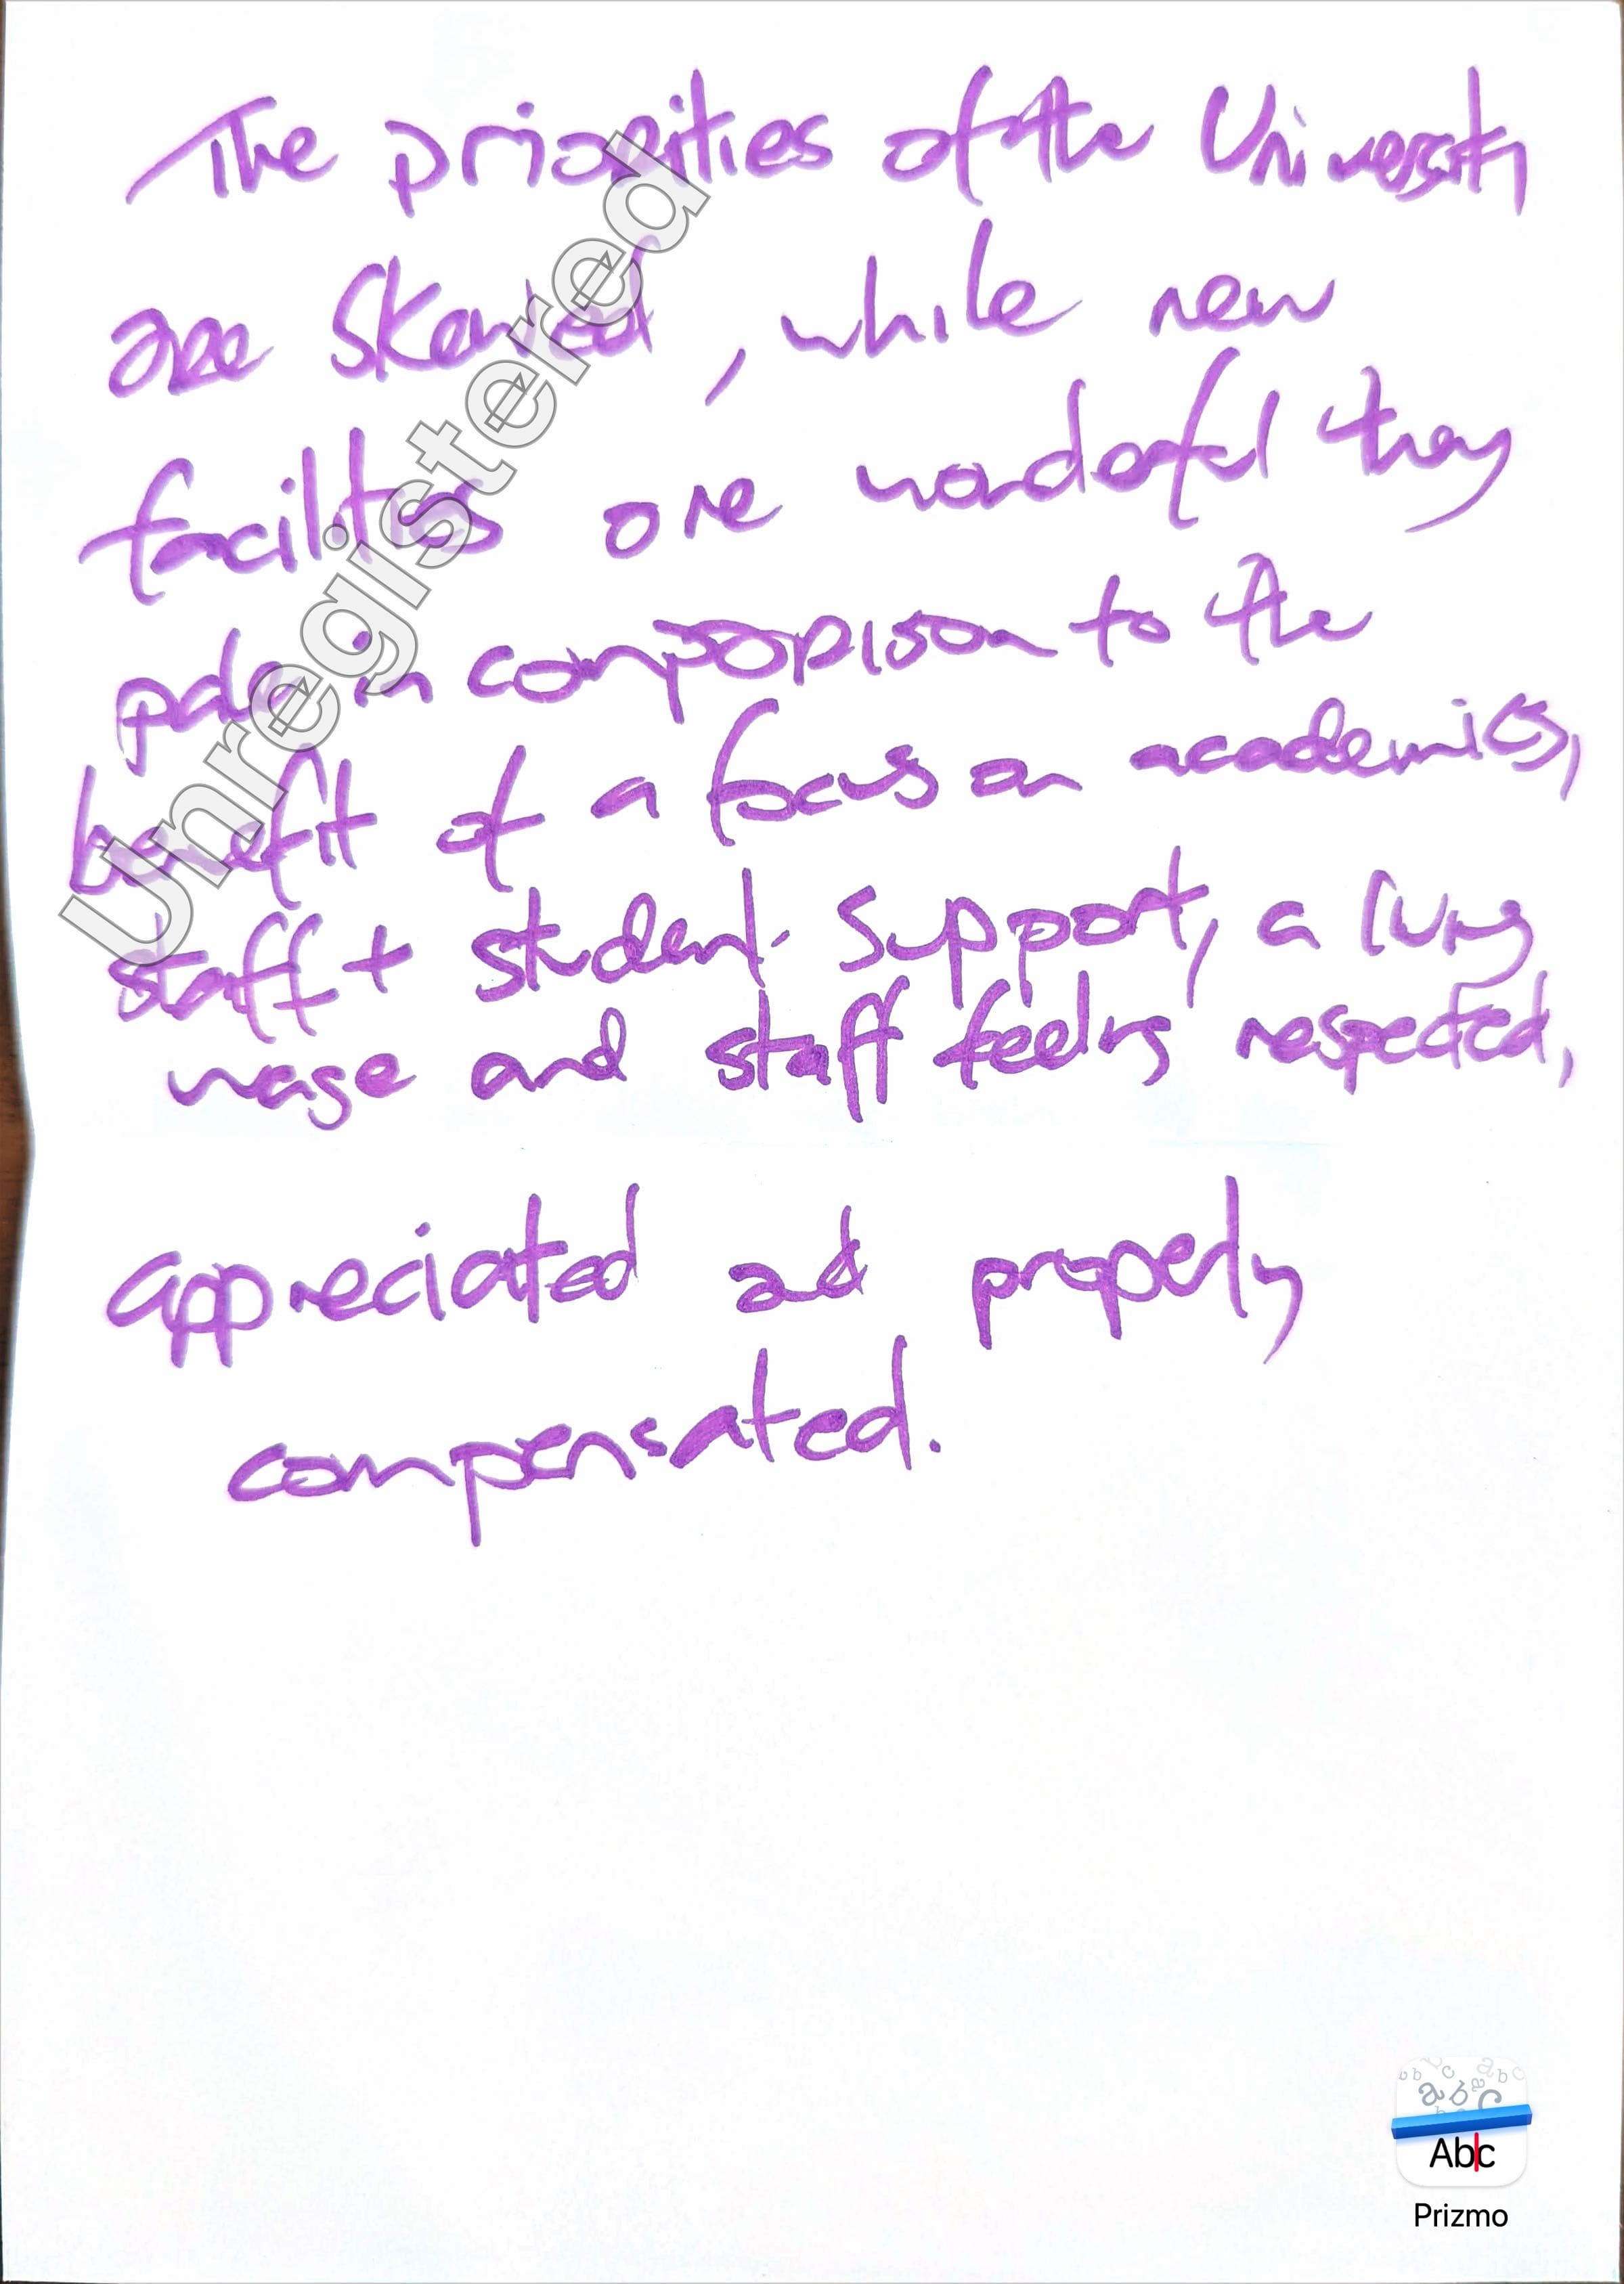 The priorities of the University
are skewed, while new
facilities are wonderful they
pale in comparison to the
benefit of a focus on academics,
staff + student support, a living
wage and staff feeling respected,
appreciated and properly
compensated.
Unregistered
Abc
Prizmo